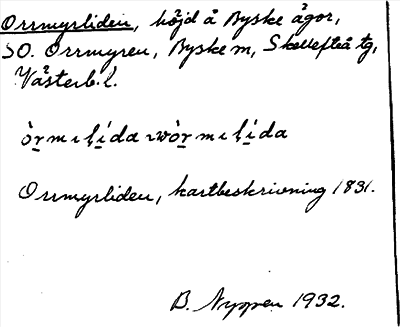 Orrmyrliden, höjd å Byske ägor,
SO. Orrmyren, Byske m, Skellefteå tg,
Västerb. l.
Orrmyrliden, kartbeskrivning 1831.
B. Nyppen 1932.